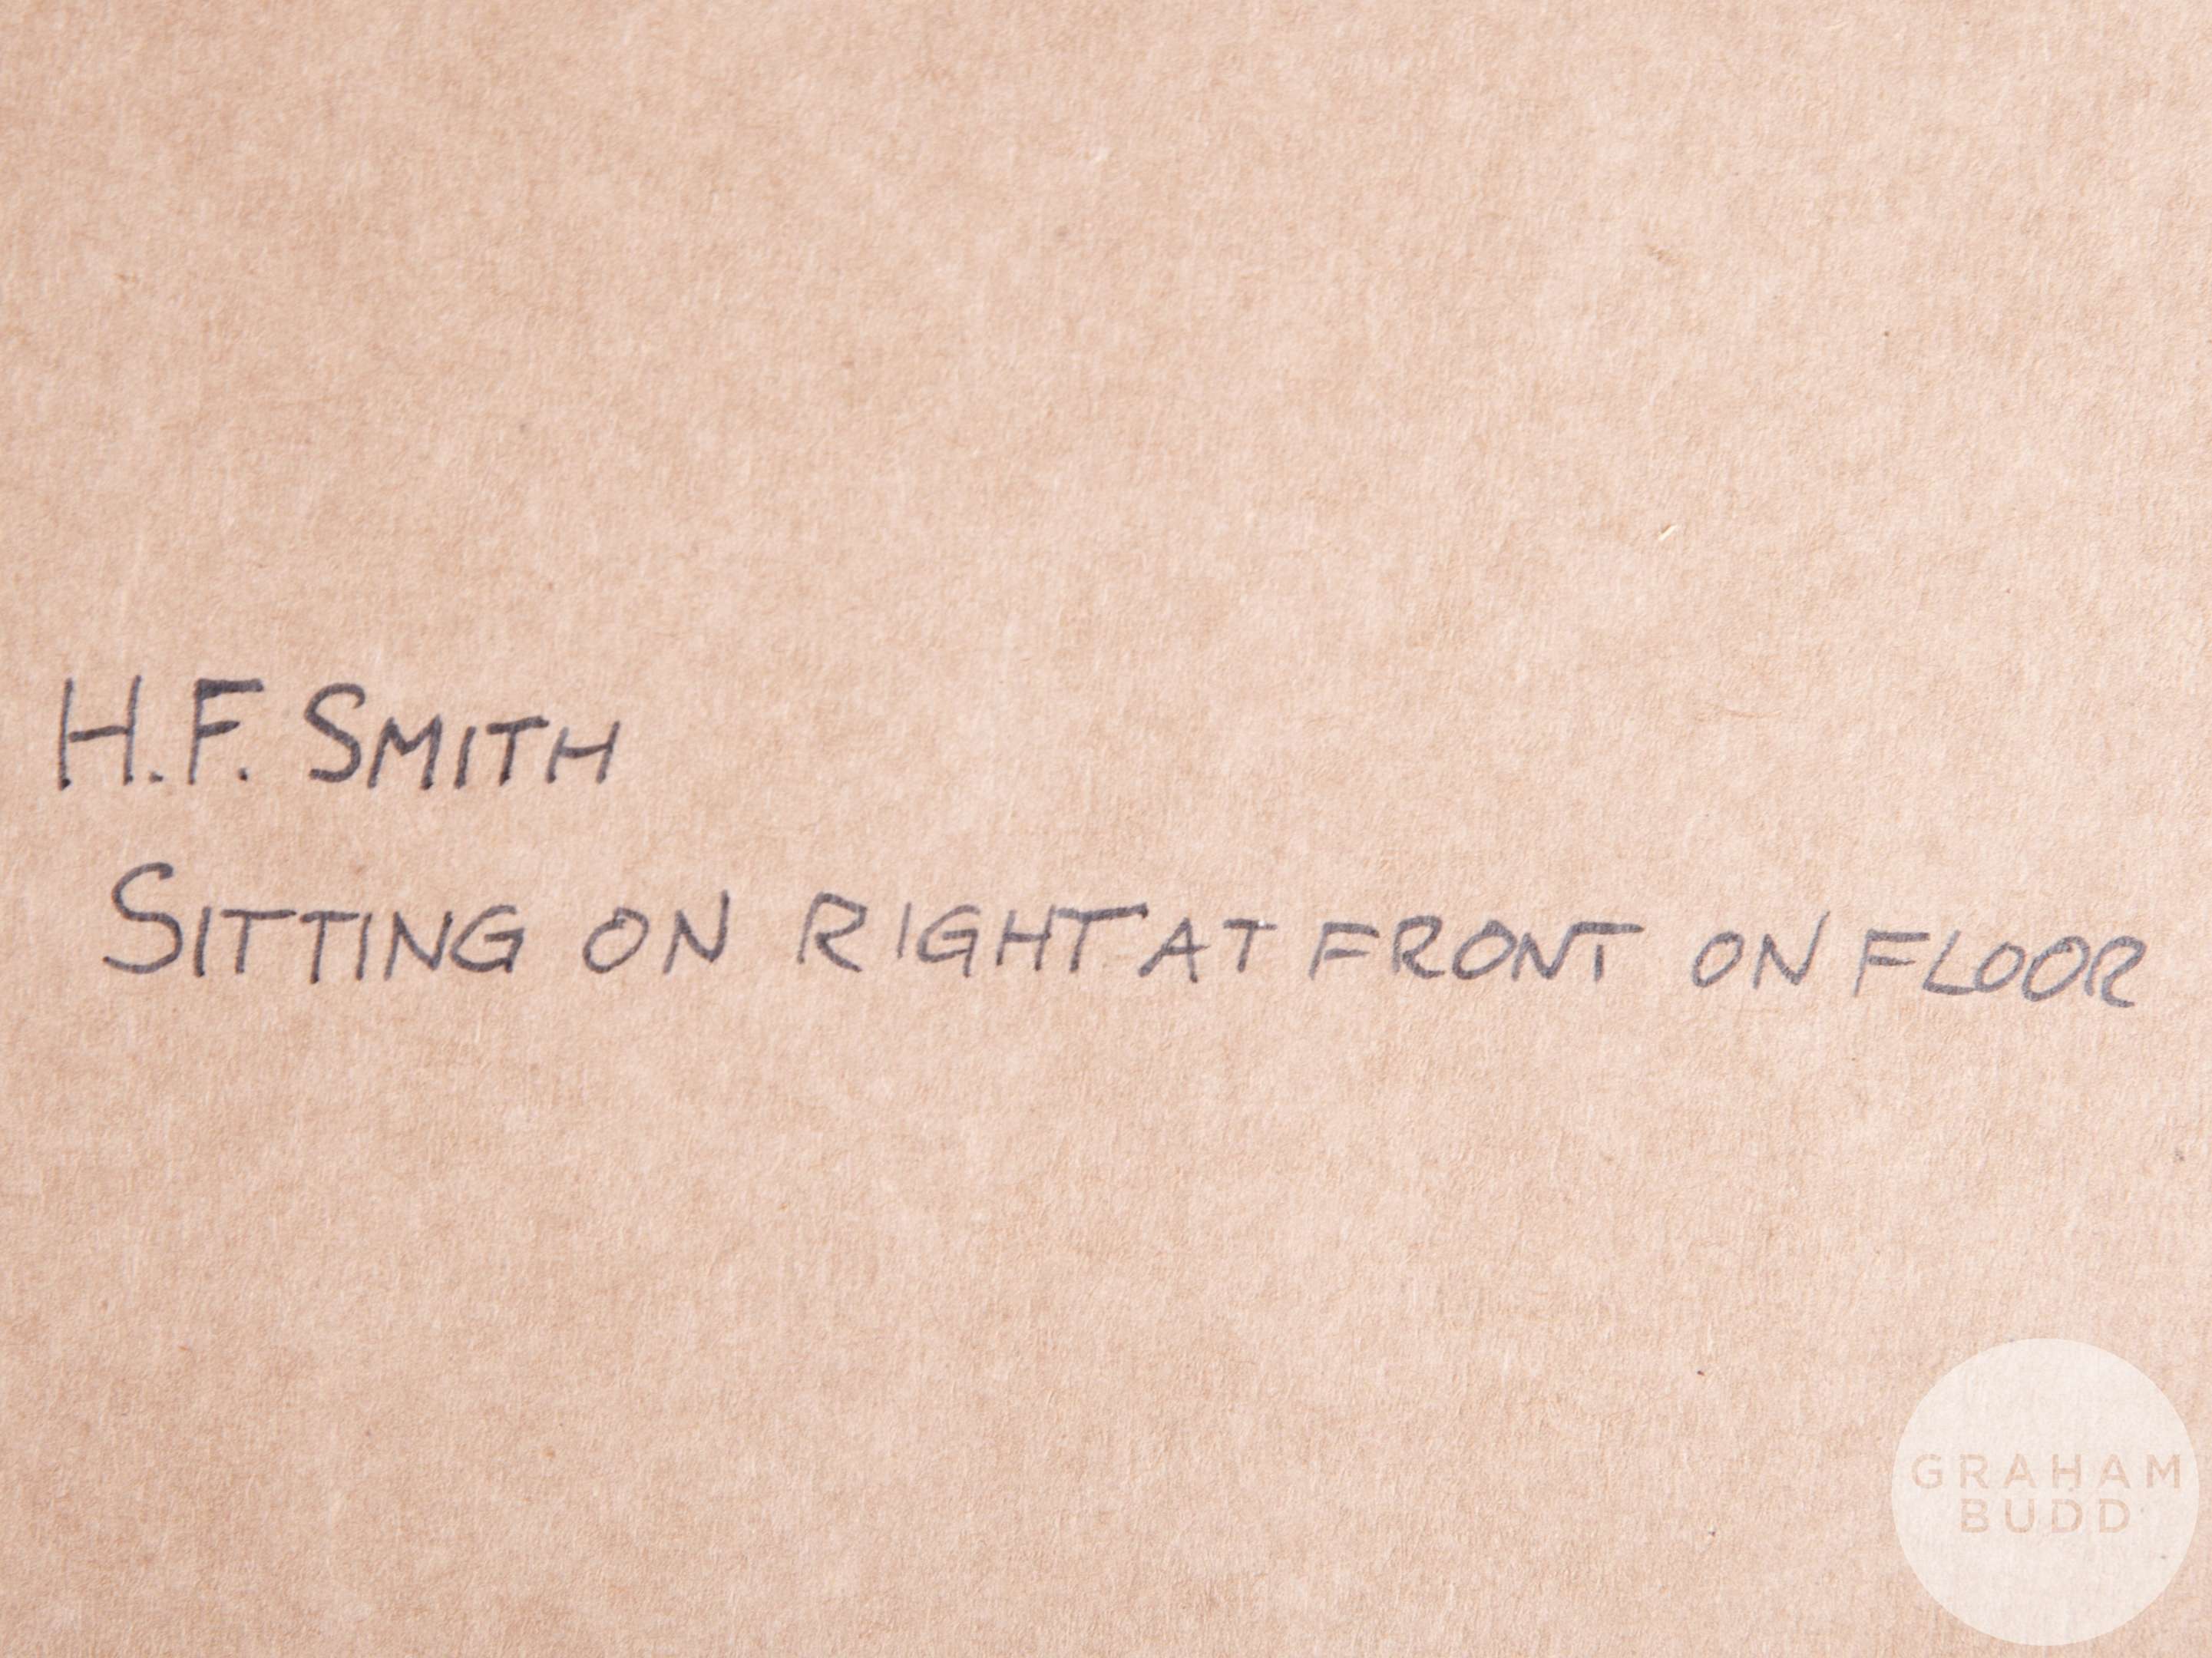 H.F. SMITH
SITTING ON RIGHT AT FRONT ON FLOOR
GRAHAM
BUDD